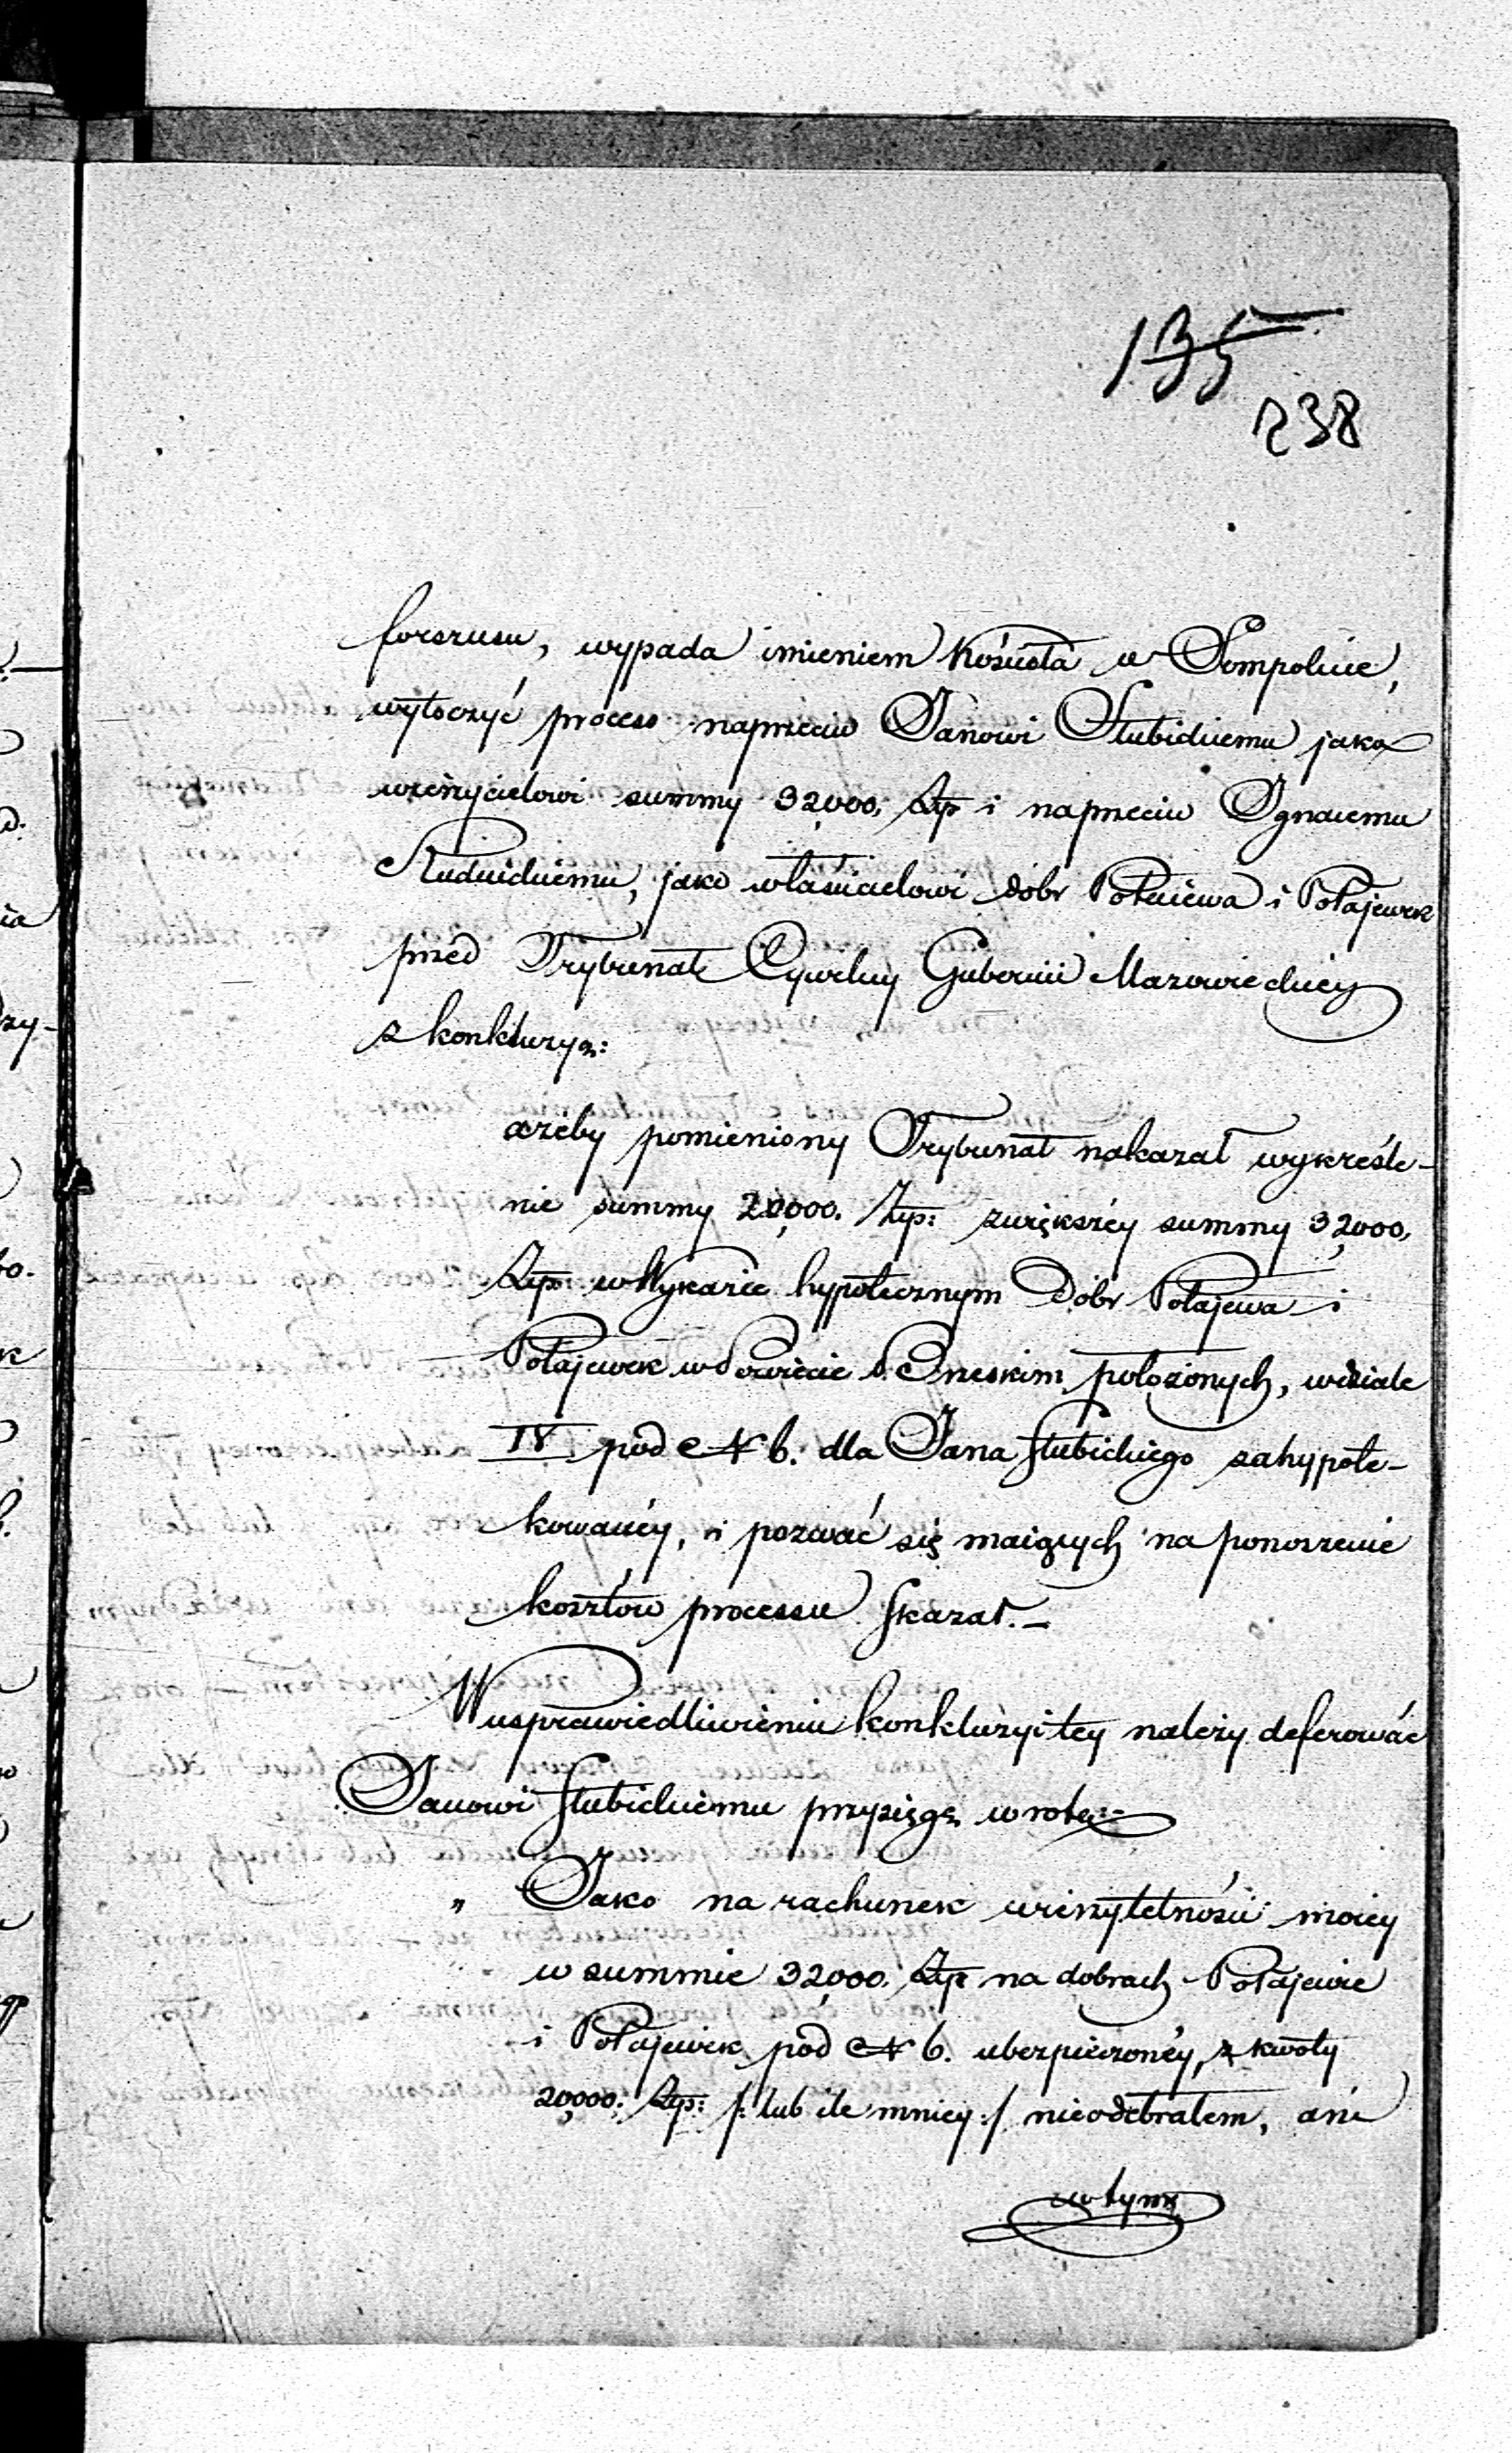 135
238
forszusu, wypada imieniem Kościoła w Sompolnie,
wytoczyć process naprzeciw Janowi Słubickiemu jako
wierzycielowi summy 32,000. Złp i naprzeciw Ignacemu
Rudnickiemu, jako właścicielowi dóbr Połaiewa i Połajewek
przed Trybunał Cywilny Gubernii Mazowieckiey
z konkluzyą:
ażeby pomieniony Trybunał nakazał wykreśle-
nie summy 20,000. Złp: zwiększey summy 32,000.
Złp: w Wykazie hypotecznym Dóbr Połajewa i
Połajewek w Powiecie położonych, wdziale
IV pod N 6. dla Jana Słubickiego zahypote-
kowaney, i pozwać się maiących na ponoszenie
kosztów processu skazał.-
W usprawiedliwieniu konkluzyi tey należy deferować
Janowi Słubickiemu przysięgę w rotę:-
" Jako na rachunek wierzytelności moiey
w summie 32,000. Złp na dobrach Połajewie
i Połajewek pod N 6. ubezpieczoney, z kwoty
20,000. Złp: /: lub ile mniey :/ nieodebrałem, ani
w tym